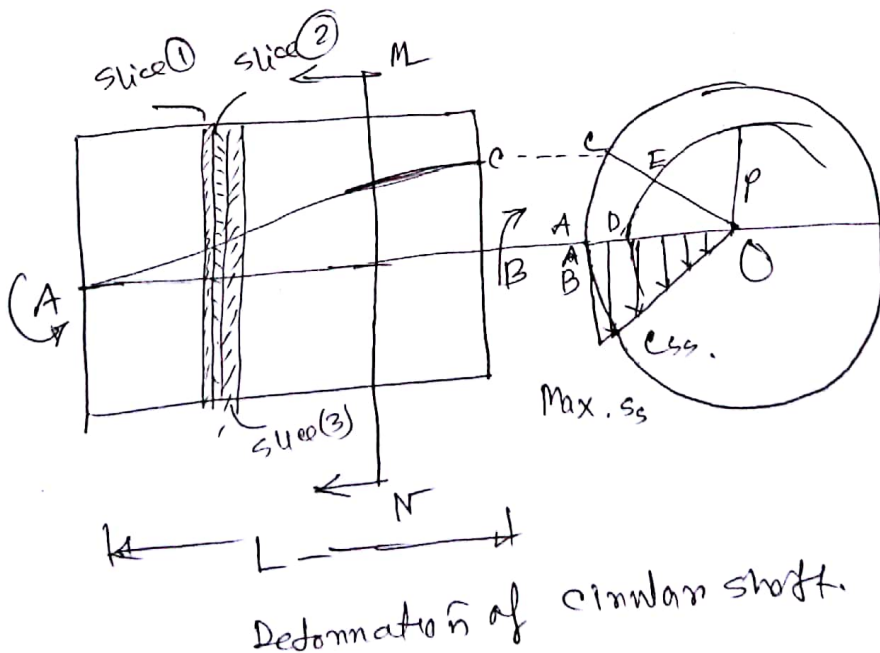 slice ① slice ②
M
C C
E
A D P
A B A
B O
Css.
Max. Ss
slice(3)
N
L
Deformation of circular shaft.